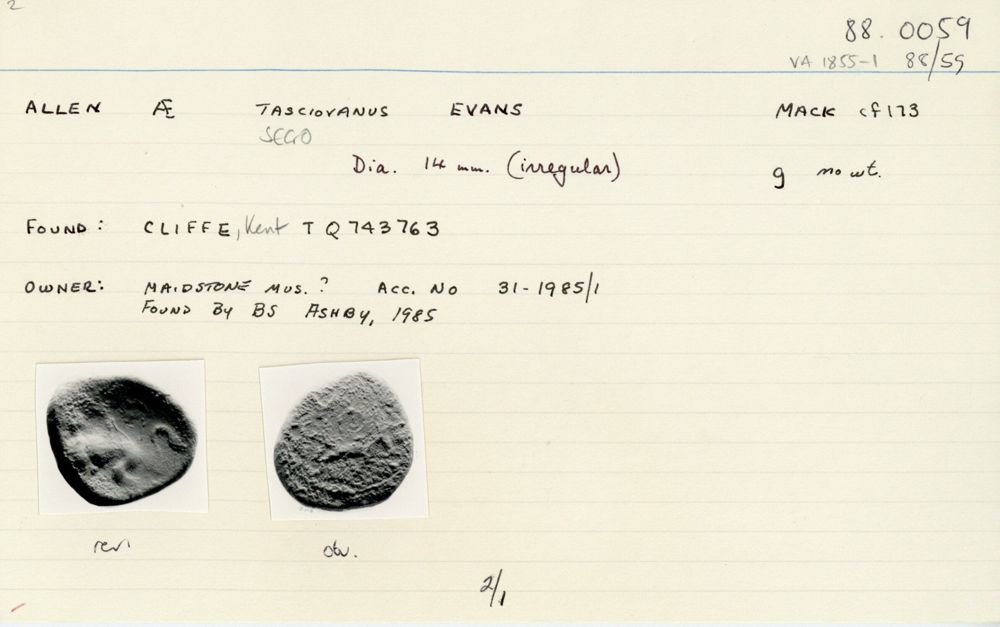 2
88. 0059
VA 1855-1 88/59
ALLEN Æ TASCIOVANUS EVANS MACK cf 173
SEGO
Dia. 14 mm. (irregular) g no wt.
FOUND: CLIFFE, Kent TQ743763
OWNER: MAIDSTONE MUS.? ACC. NO 31-1985/1
FOUND BY BS ASHBY, 1985
rev. obv.
2/1